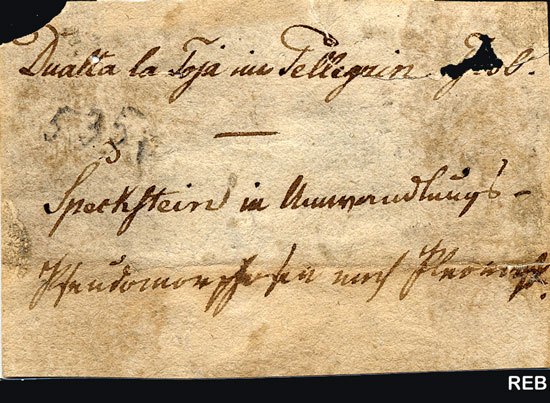 Dualta la Foja im Pellegrin
535
Speckstein in Umwandlungs-
Pseudomorphosen nach
REB